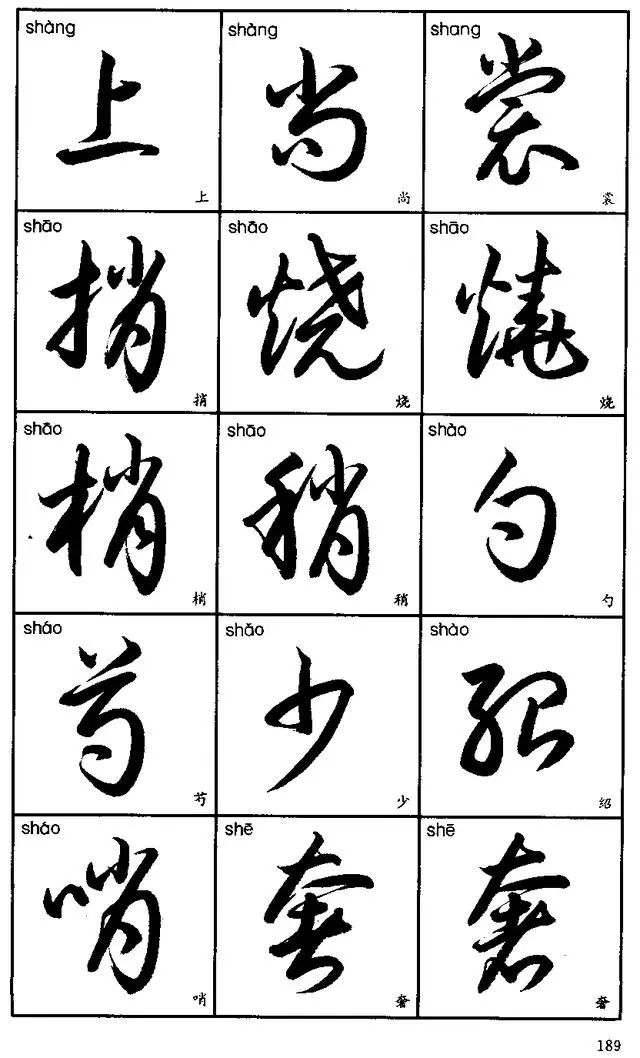 shàng shàng shang
上 尚 裳
上 尚 裳
shāo shāo shāo
捎 烧 燒
捎 烧 烧
shāo shāo shào
梢 稍 勺
梢 稍 勺
sháo shǎo shào
芍 少 绍
芍 少 绍
sháo shē shē
哨 奢 奢
哨 奢 奢
189